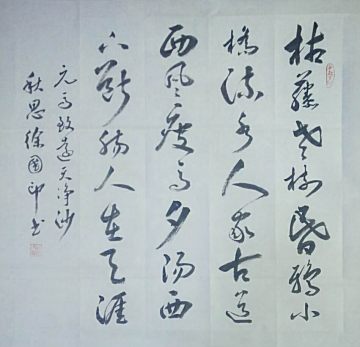 枯藤老樹昏鴉小
橋流水人家古道
西風瘦馬夕陽西
下斷腸人在天涯
元馬致遠天淨沙
秋思徐國印書